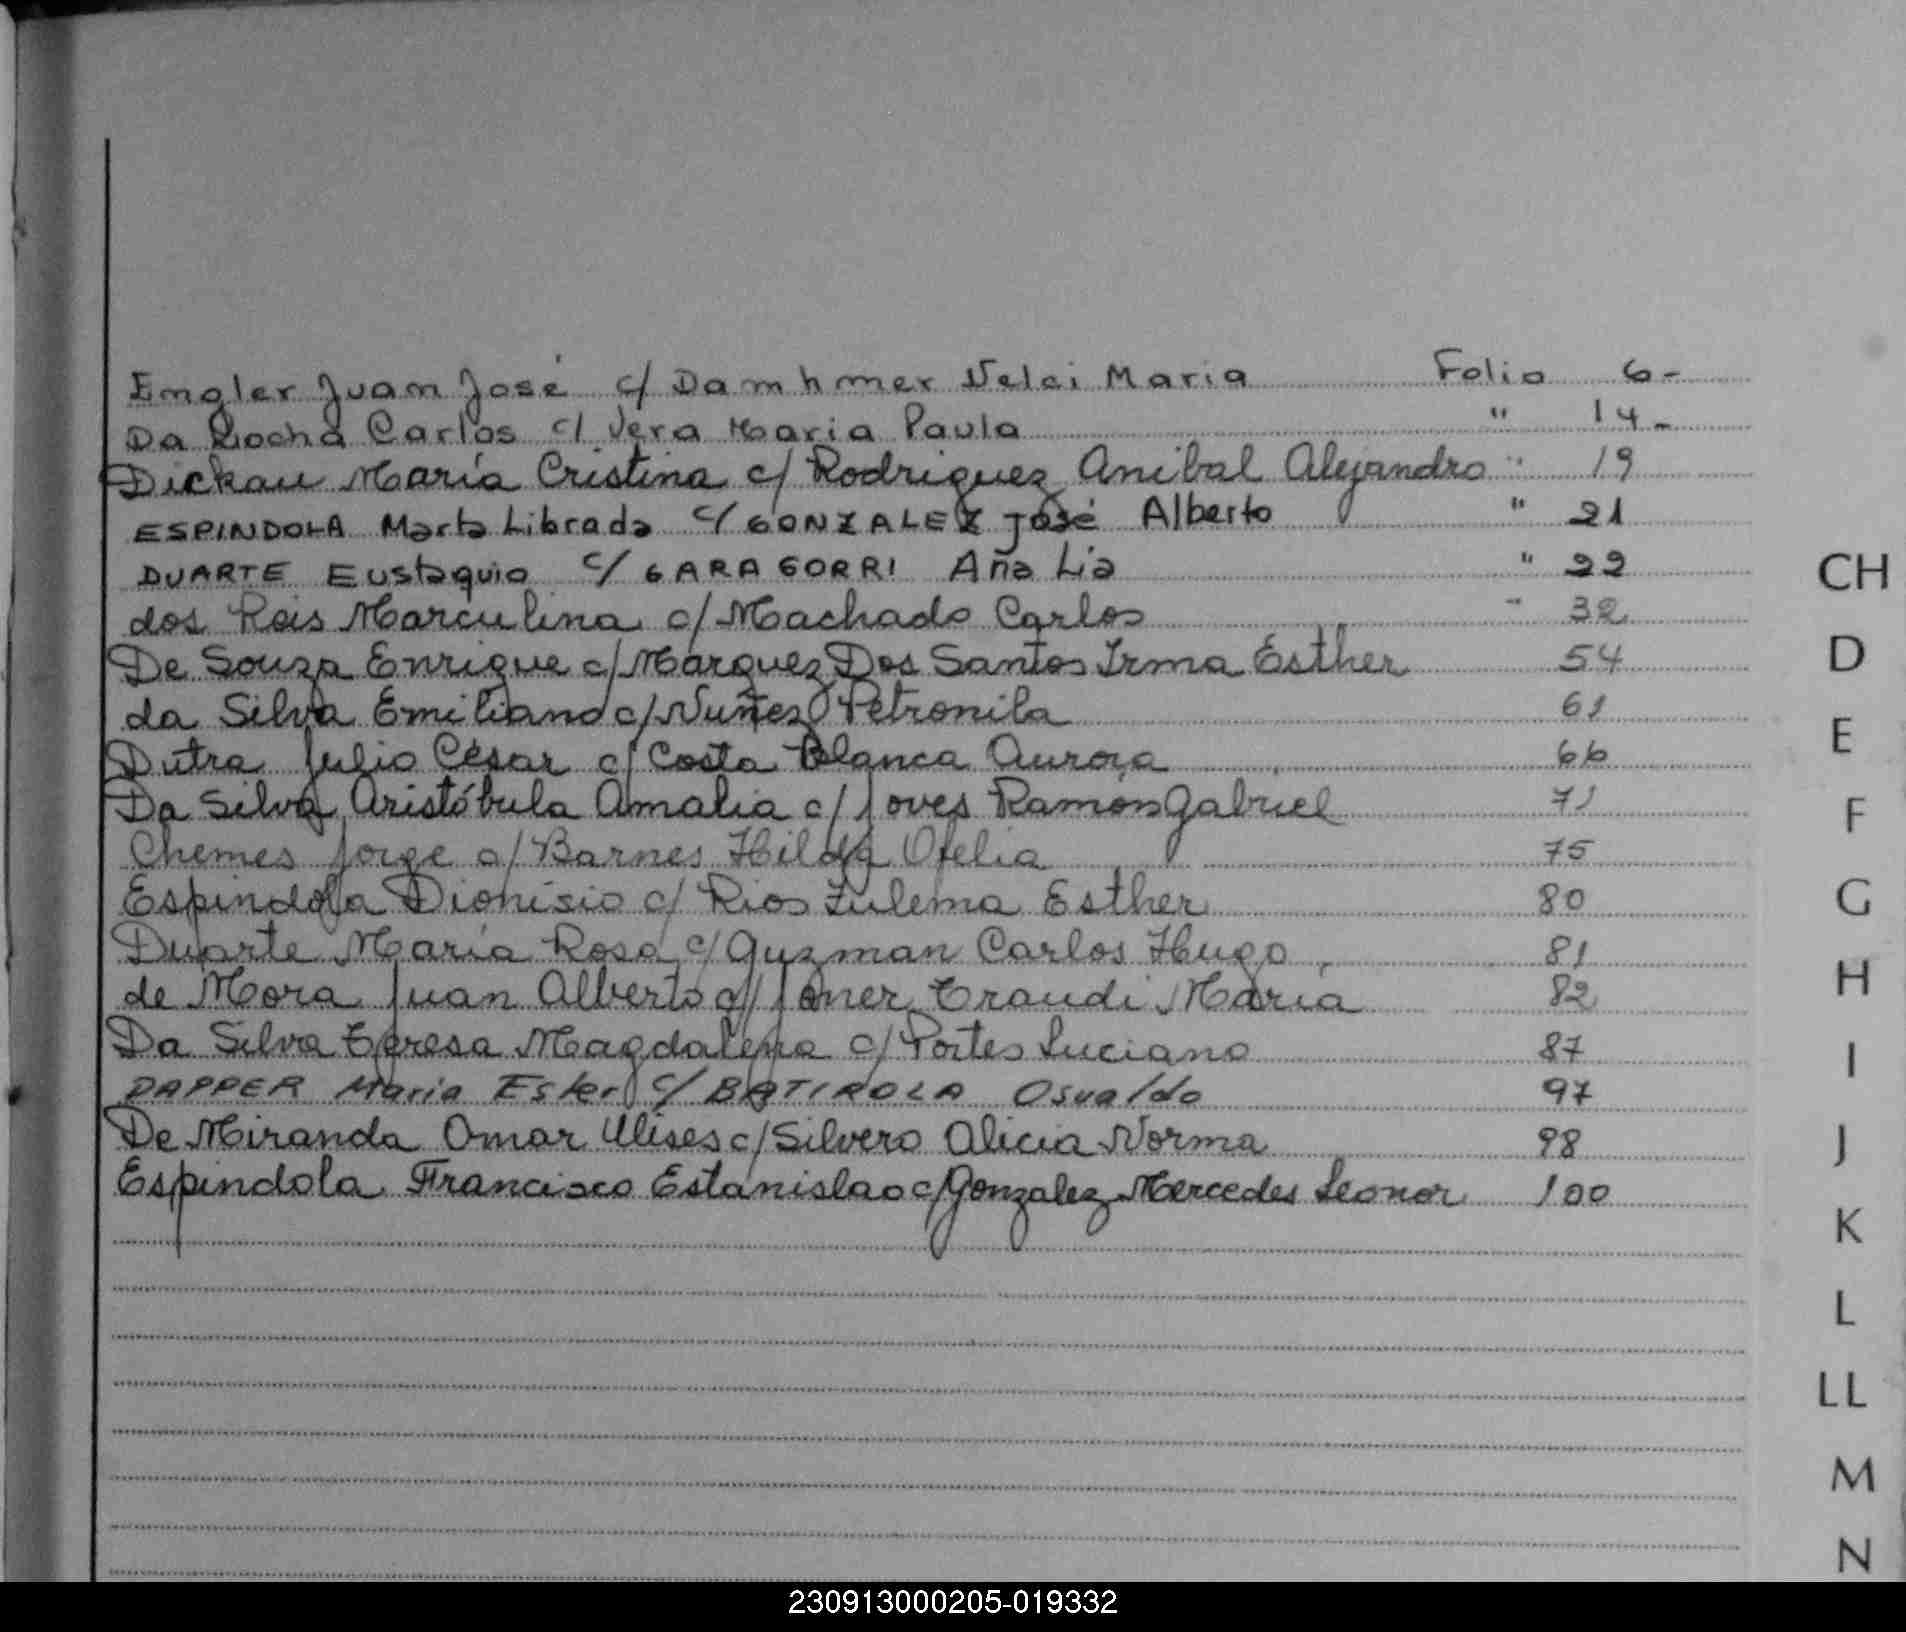 Engler Juan José c/ Damhmer Nelci Maria Folio 6-
Da Rocha Carlos c/ Vera Maria Paula " 14-
Dickau María Cristina c/ Rodriguez Anibal Alejandro " 19
ESPINDOLA Marta Librada c/ GONZALEZ José Alberto " 21
DUARTE Eustaquio c/ GARAGORRI Ana Lia " 22
dos Reis Marculina c/ Machado Carlos " 32
De Souza Enrique c/ Marquez Dos Santos Irma Esther 54
da Silva Emiliano c/ Nuñez Petronila 61
Dutra Julio César c/ Costa Blanca Aurora 66
Da Silva Aristóbula Amalia c/ Joves Ramón Gabriel 71
Chemes Jorge c/ Barnes Hilda Ofelia 75
Espindola Dionisio c/ Rios Zulema Esther 80
Duarte María Rosa c/ Guzman Carlos Hugo 81
de Mora Juan Alberto c/ Joner Traudi Maria 82
Da Silva Teresa Magdalena c/ Portes Luciano 87
DAPPER Maria Ester c/ BATIROLA Osvaldo 97
De Miranda Omar Ulises c/ Silvero Alicia Norma 98
Espindola Francisco Estanislao c/ Gonzalez Mercedes Leonor 100
CH
D
E
F
G
H
I
J
K
L
LL
M
N
230913000205-019332